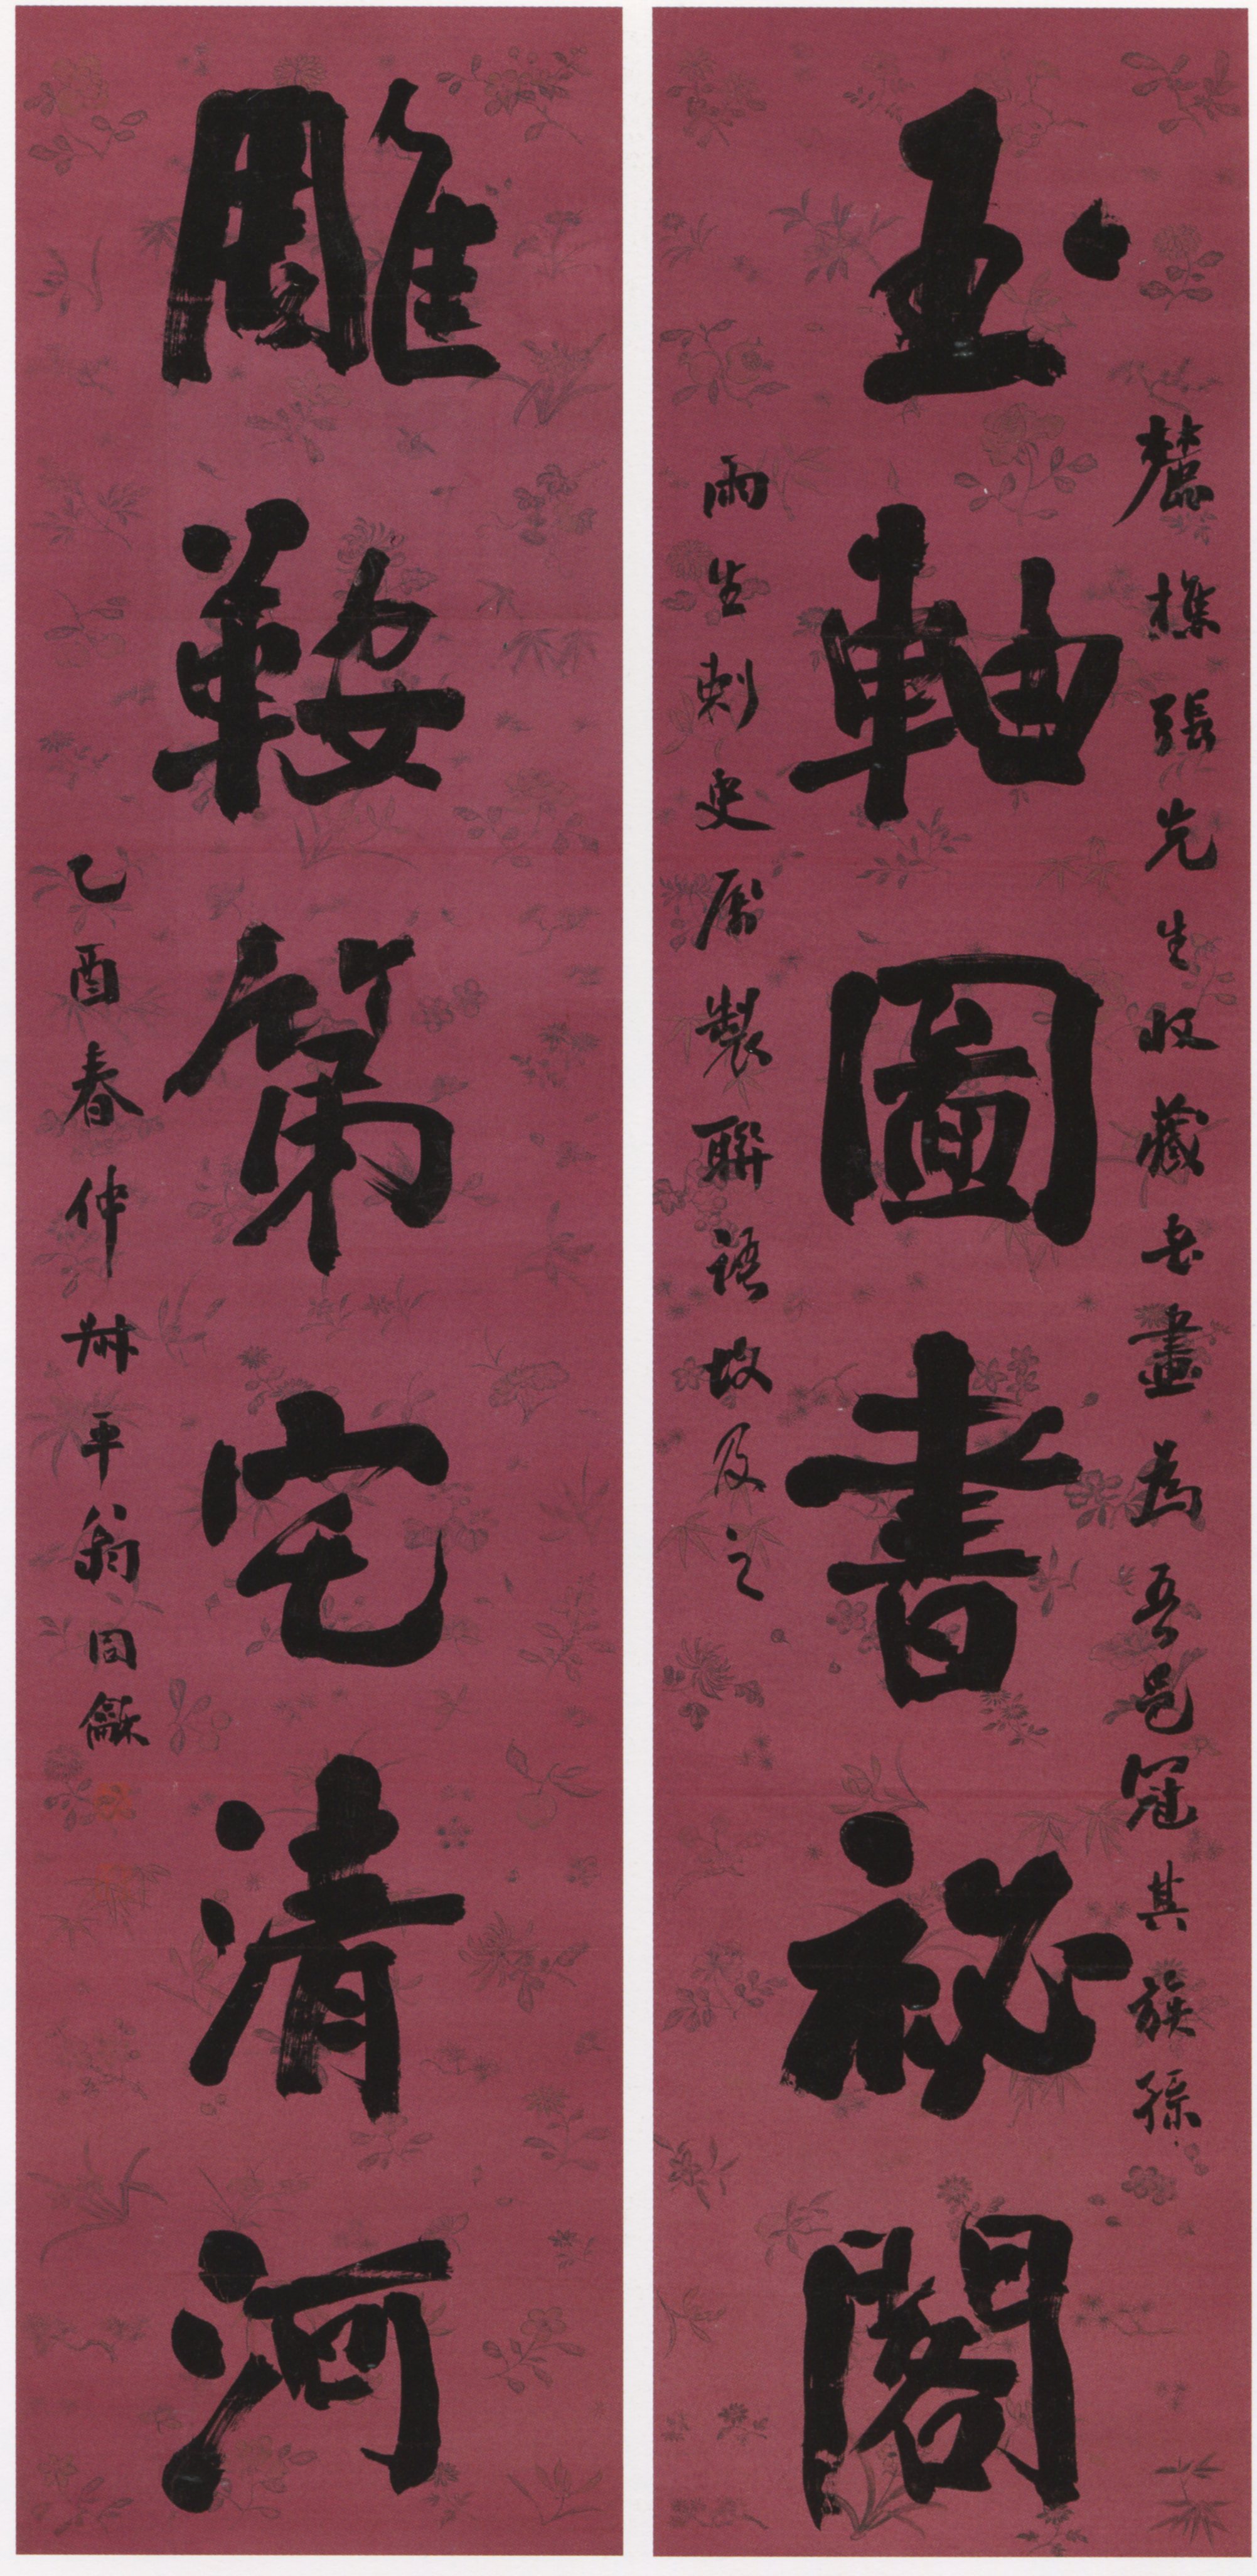 麓樵張先生收藏書畫爲吾邑冠其族孫
玉軸圖書祕閣
雨生刺史屬製聯語故及之
雕鞍第宅清河
乙酉春仲叔平翁同龢